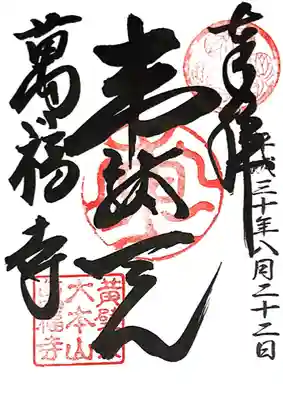 奉拝
平成三十年八月二十二日
韋駄天
萬福寺
黄檗宗
大本山
萬福寺